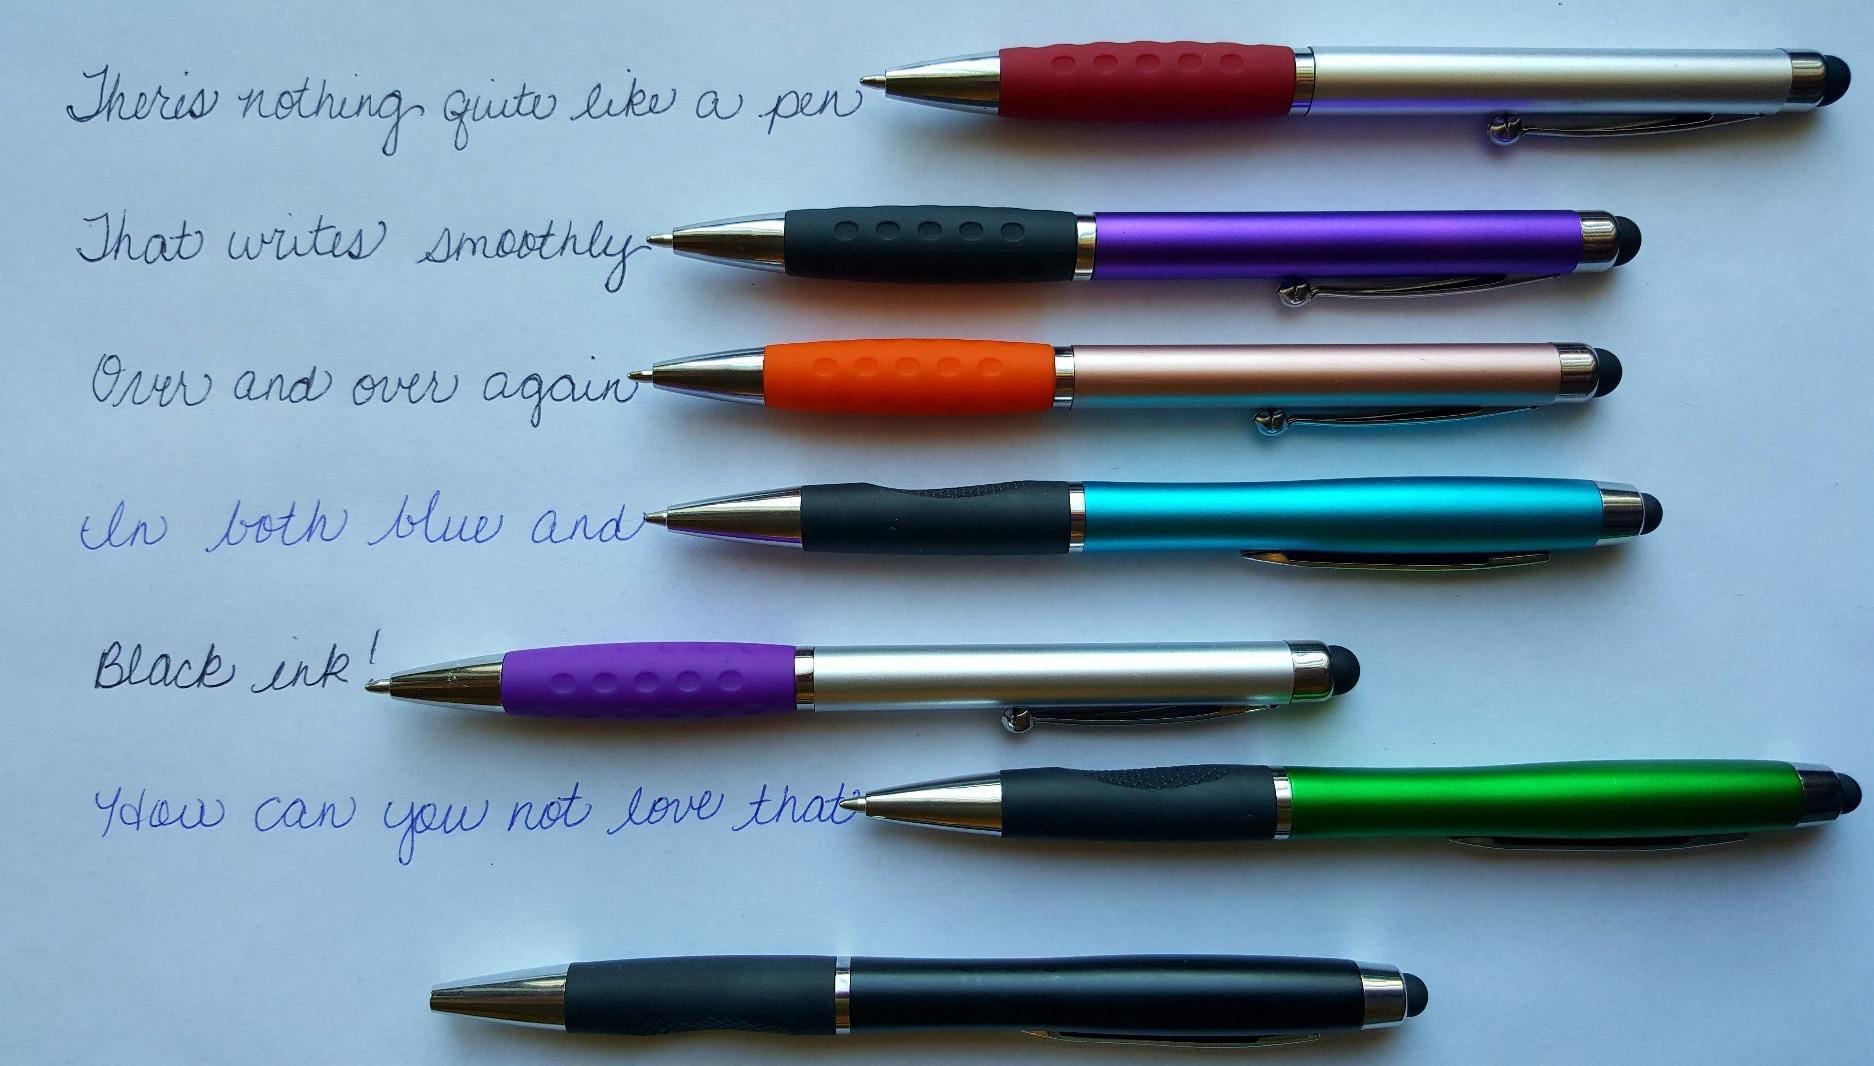 Theris nothing quite like a pen
That writes smoothly
Over and over again
In both blue and
Black ink!
How can you not love that